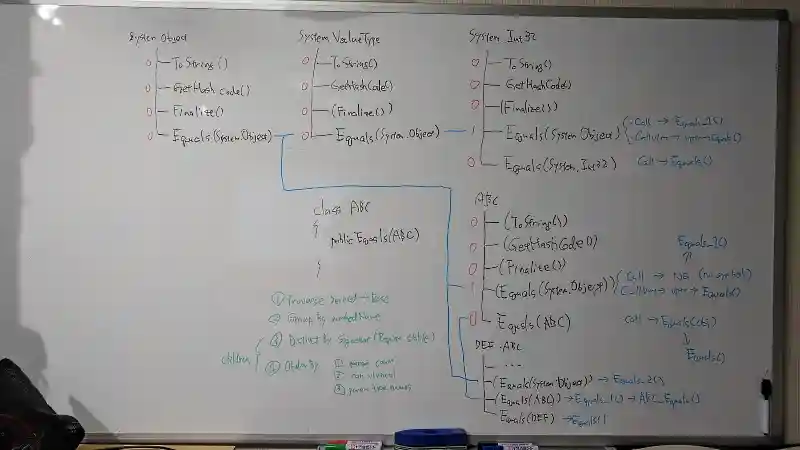 System.Object
0 ToString()
0 GetHashCode()
0 Finalize()
0 Equals(System.Object)
System.ValueType
0 ToString()
0 GetHashCode()
0 (Finalize())
0 Equals(System.Object)
System Int32
0 ToString()
0 GetHashCode()
0 (Finalize())
1 Equals(System.Object)
Call → Equals_1()
Callvirt → → Equals()
0 Equals(System.Int32)
Call → Equals()
class ABC
{
public Equals(ABC)
}
ABC
0 (ToString())
0 (GetHashCode())
0 (Finalize())
1 (Equals(System.Object))
Equals_1()
Call → NG (no symbol)
Callvirt → → Equals()
0 Equals(ABC)
Call → Equals(obj)
Equals()
DEF : ABC
...
(Equals(System.Object)) → Equals_2()
(Equals(ABC)) → Equals_1() → ABC_Equals()
Equals(DEF) → Equals()
① Traverse
② Group by
③ Distinct by
children
④ Order by
① param count
② non virtual
③ param type names